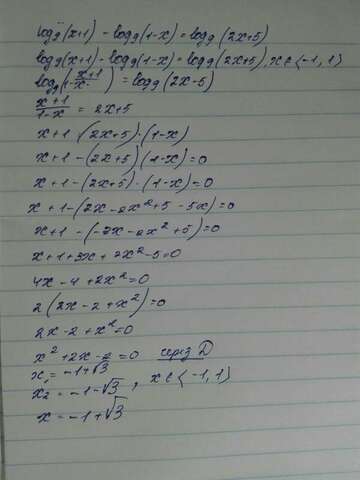 log₉(x+1) - log₉(1-x) = log₉(2x+5)
log₉(x+1) - log₉(1-x) = log₉(2x+5), x ∈ (-1, 1)
log₉(x+1/1-x) = log₉(2x-5)
x+1/1-x = 2x+5
x+1 = (2x+5)·(1-x)
x+1-(2x+5)·(1-x)=0
x+1-(2x+5)·(1-x)=0
x+1-(2x-2x²+5-5x)=0
x+1-(-3x-2x²+5)=0
x+1+3x+2x²-5=0
4x-4+2x²=0
2(2x-2+x²)=0
2x-2+x²=0
x²+2x-2=0 через D
x₁=-1+√3
x₂=-1-√3, x∈(-1,1)
x=-1+√3